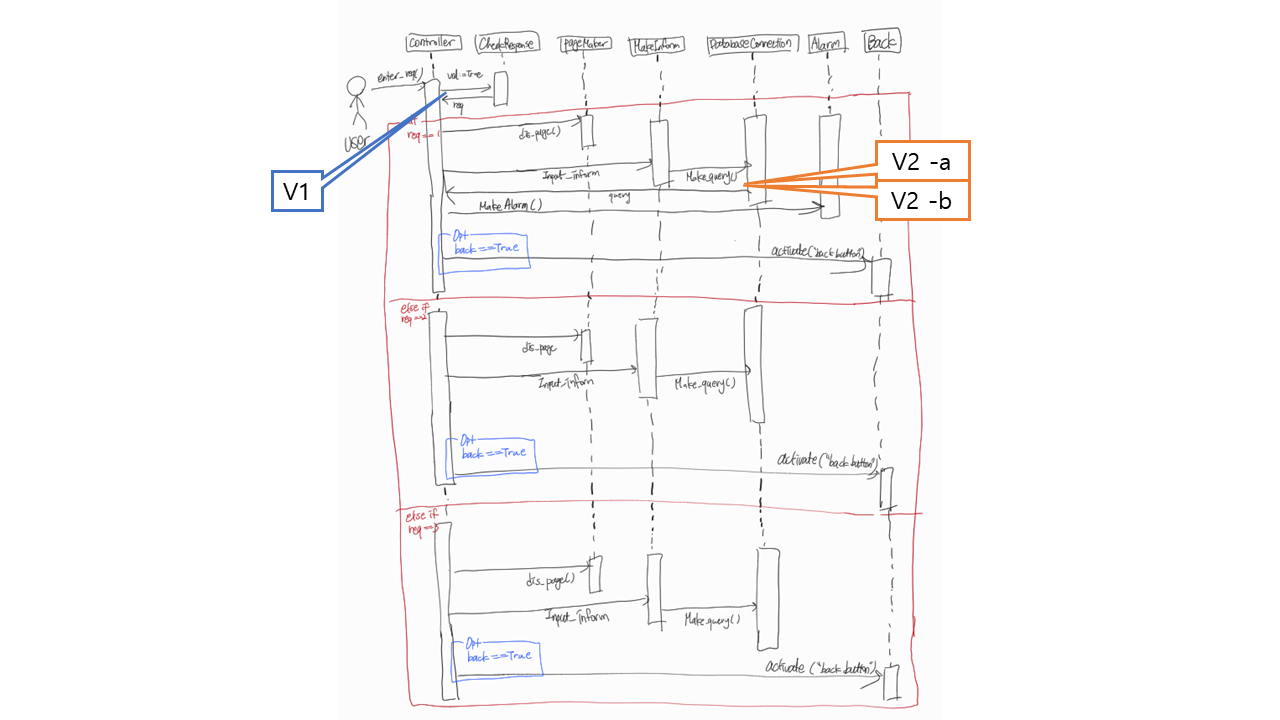 Controller
CheckResponse
pageMaker
MakeInform
DatabaseConnection
Alarm
Back
enter_req()
val=True
req
User
if
req==1
dis_page()
Input_Inform
Make_query()
query
MakeAlarm()
V1
V2 -a
V2 -b
Opt
back==True
activate("back button")
else if
req==2
dis_page
Input_Inform
Make_query()
Opt
back==True
activate("back button")
else if
req==3
dis_page()
Input_Inform
Make_query()
Opt
back==True
activate("back button")